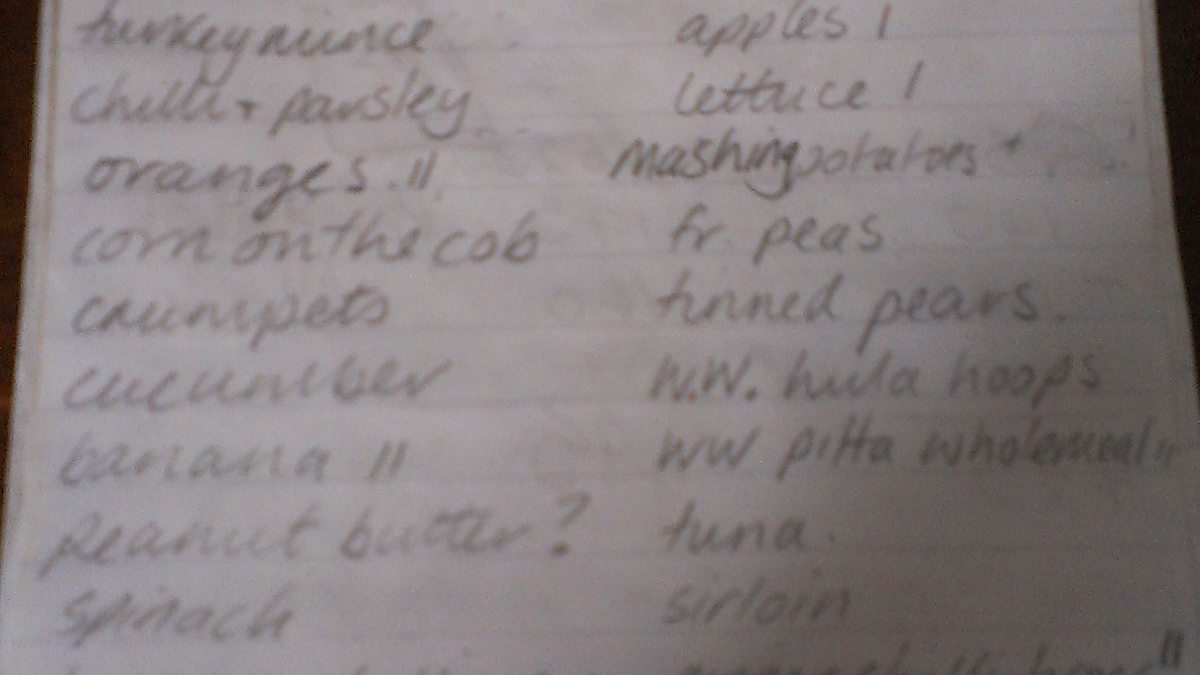 turkey mince
chilli + parsley
oranges . ||
corn on the cob
crumpets
cucumber
banana ||
peanut butter?
spinach
apples |
lettuce |
Mashing potatoes +
fr. peas
tinned pears.
W.W. hula hoops
WW pitta wholemeal
tuna.
sirloin
||